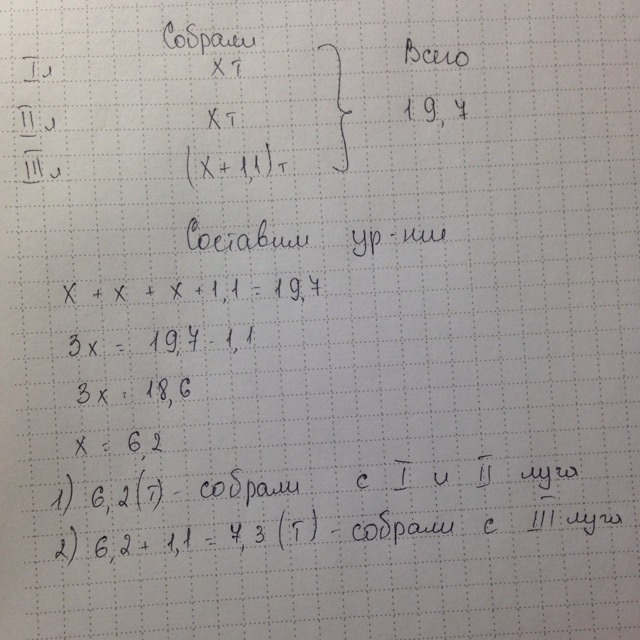 Собрали Всего
I л x т
II л x т 19,7
III л (x + 1,1) т
Составим ур-ние
x + x + x + 1,1 = 19,7
3x = 19,7 - 1,1
3x = 18,6
x = 6,2
1) 6,2 (т) - собрали с I и II луга
2) 6,2 + 1,1 = 7,3 (т) - собрали с III луга